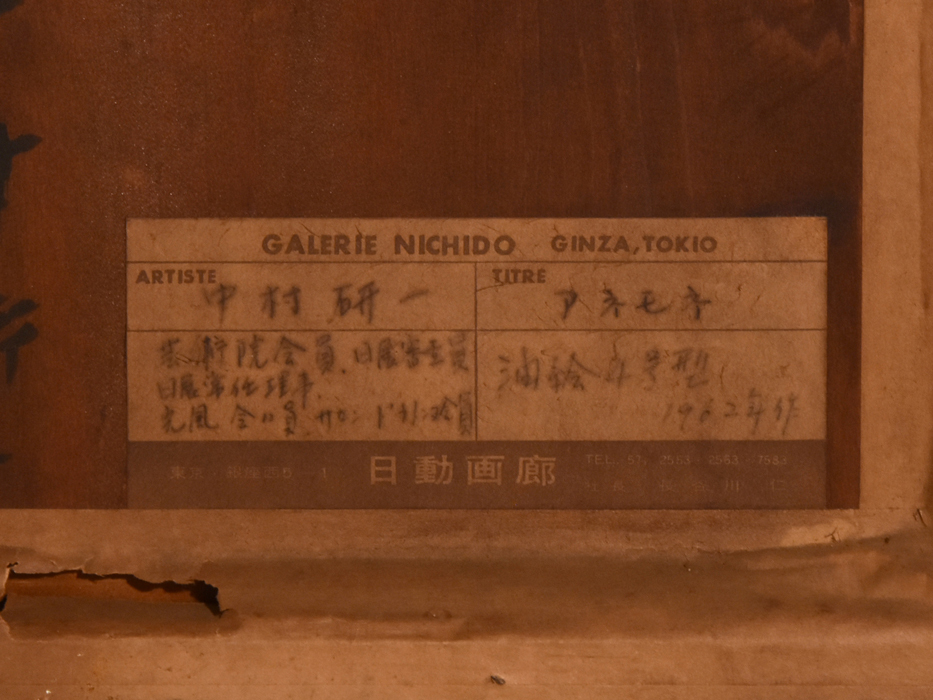 GALERIE NICHIDO GINZA, TOKIO
ARTISTE
中村研一
TITRE
アネモネ
芸術院会員、日展審査員
日展常任理事
光風会会員
油絵4号型
1962年作
東京・銀座西5-1
日動画廊
TEL. 57, 2553・2553・7553
社長 長谷川 仁